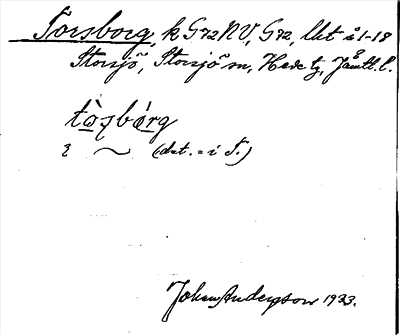 Torsborg, k G72NV, G72, Ubt å 1-18
Storsjö, Storsjö sn, Hede tg, Jämtl. l.
tòs̩bórg
ɩ ~ (dat. = i T.)
Johan Anderzson 1933.